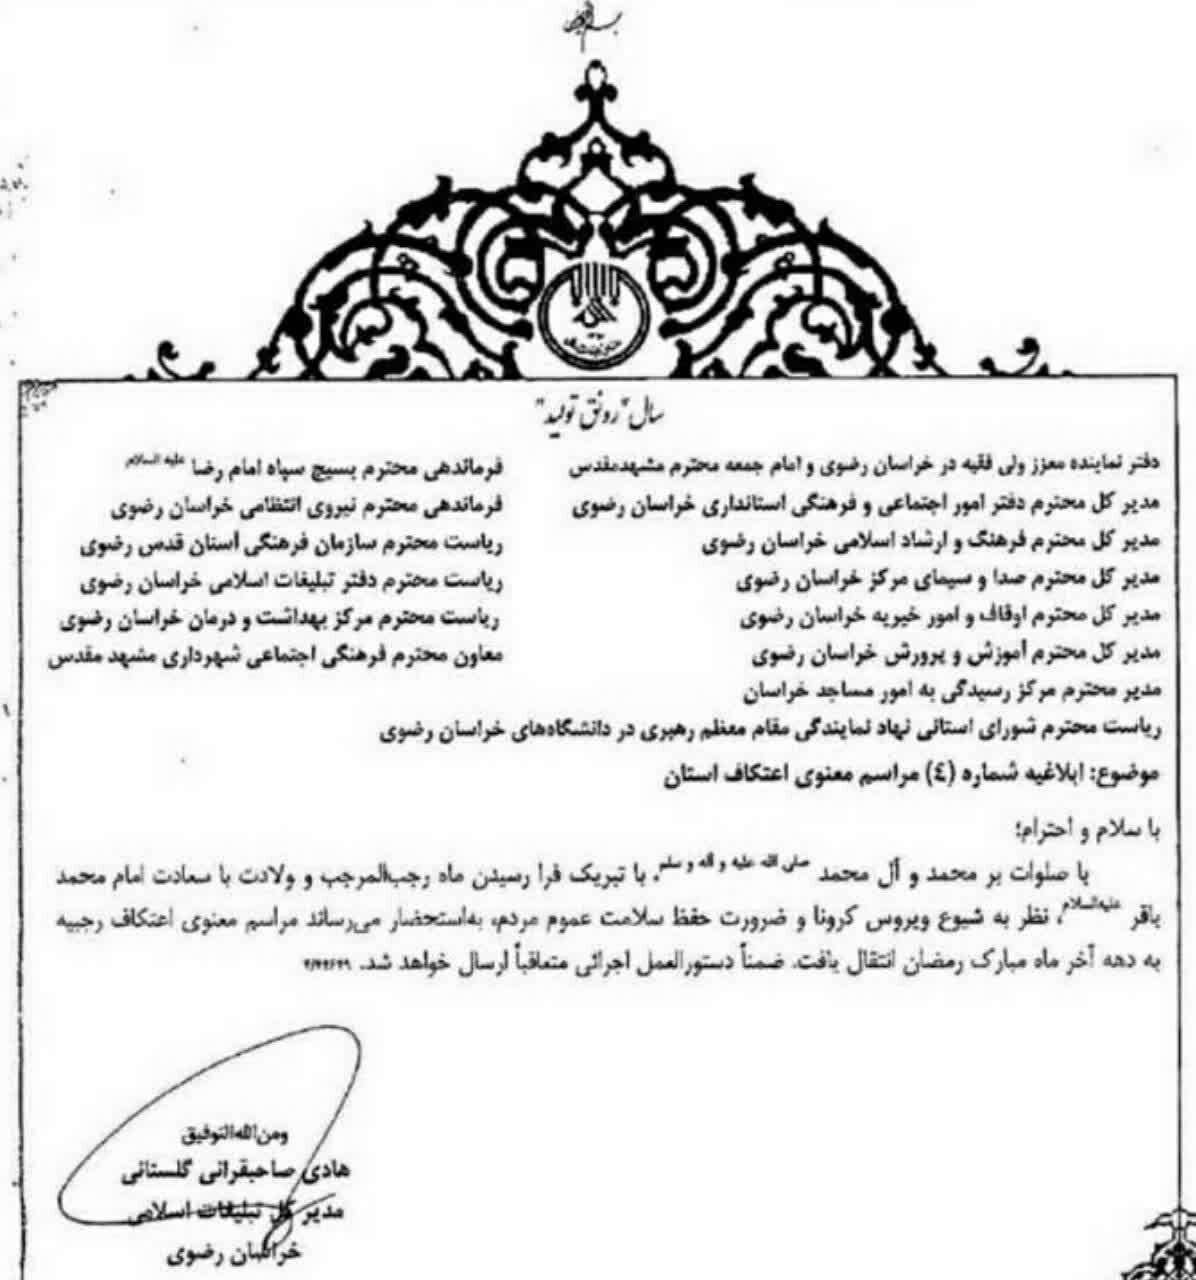 سال "رونق تولید"
دفتر نماینده معزز ولی فقیه در خراسان رضوی و امام جمعه محترم مشهدمقدس
مدیر کل محترم دفتر امور اجتماعی و فرهنگی استانداری خراسان رضوی
مدیر کل محترم فرهنگ و ارشاد اسلامی خراسان رضوی
مدیر کل محترم صدا و سیمای مرکز خراسان رضوی
مدیر کل محترم اوقاف و امور خیریه خراسان رضوی
مدیر کل محترم آموزش و پرورش خراسان رضوی
مدیر محترم مرکز رسیدگی به امور مساجد خراسان
ریاست محترم شورای استانی نهاد نمایندگی مقام معظم رهبری در دانشگاه‌های خراسان رضوی
فرماندهی محترم بسیج سپاه امام رضا علیه السلام
فرماندهی محترم نیروی انتظامی خراسان رضوی
ریاست محترم سازمان فرهنگی آستان قدس رضوی
ریاست محترم دفتر تبلیغات اسلامی خراسان رضوی
ریاست محترم مرکز بهداشت و درمان خراسان رضوی
معاون محترم فرهنگی اجتماعی شهرداری مشهد مقدس
موضوع: ابلاغیه شماره (٤) مراسم معنوی اعتکاف استان
با سلام و احترام؛
با صلوات بر محمد و آل محمد صلی الله علیه و آله و سلم، با تبریک فرا رسیدن ماه رجب‌المرجب و ولادت با سعادت امام محمد
باقر علیه‌السلام، نظر به شیوع ویروس کرونا و ضرورت حفظ سلامت عموم مردم، به‌استحضار می‌رساند مراسم معنوی اعتکاف رجبیه
به دهه آخر ماه مبارک رمضان انتقال یافت. ضمناً دستورالعمل اجرائی متعاقباً ارسال خواهد شد.
ومن‌الله‌التوفیق
هادی صاحبقرانی گلستانی
مدیر کل تبلیغات اسلامی
خراسان رضوی